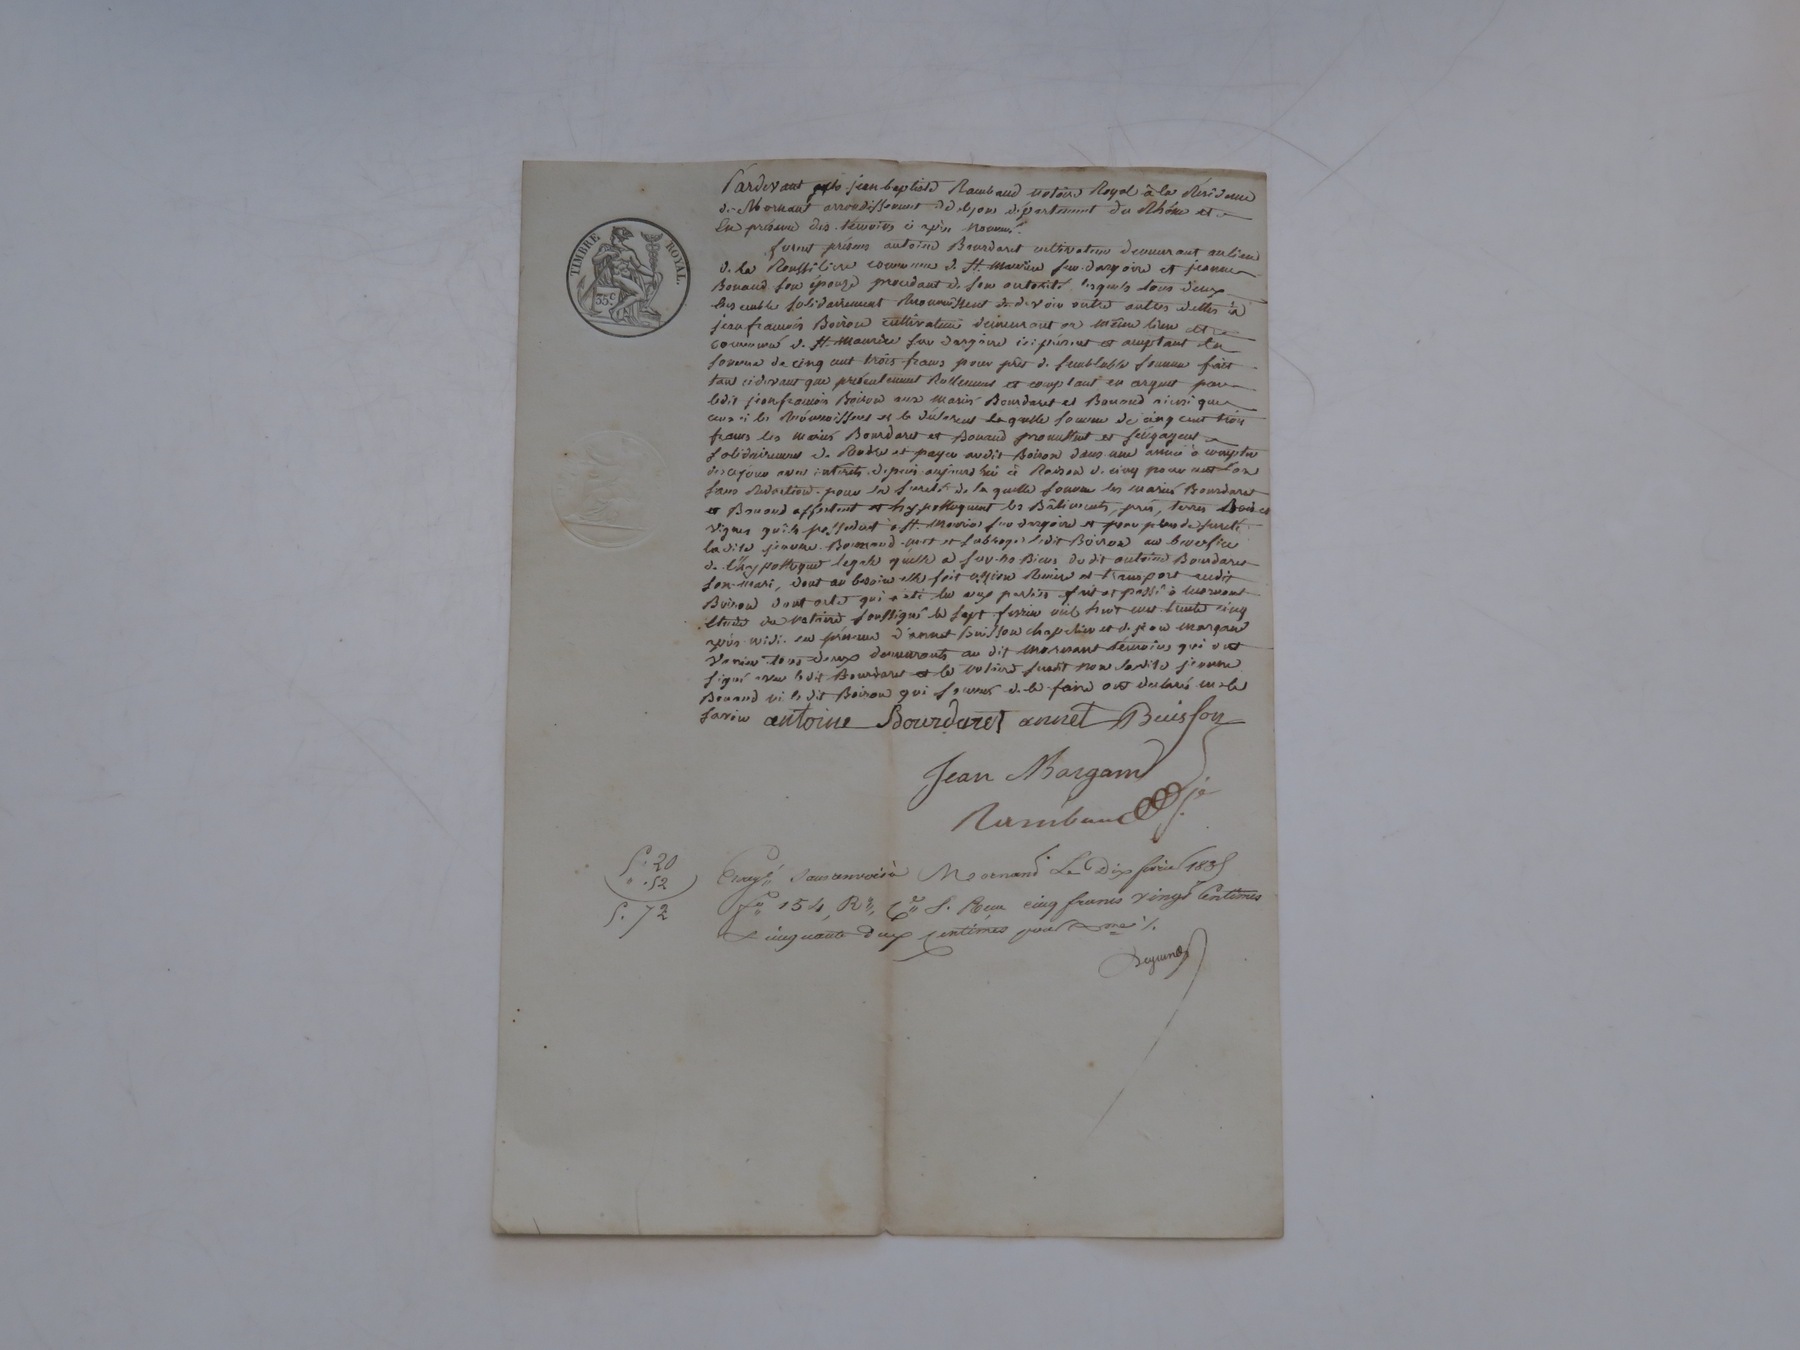 TIMBRE ROYAL.
35c
Pardevant jean baptiste Rambaud notaire Royal à la Résidence
de Mornant arrondissement de Lyon département du Rhône et
En présence des témoins ci après nommés
furent présens antoine Bourdaret cultivateur demeurant au lieu
de la Roussiliere commune de St Maurice sur dargoire et jeanne
Bonand son épouse procedant de son autorité lesquels tous deux
Ensemble solidairement Reconnoissent de devoir outre autres dettes à
jean francois Boiron cultivateur demeurant au même lieu et
commune de St Maurice sur dargoire ici présent et acceptant la
somme de cinq cent trois francs pour prêt de semblable somme fait
tant cidevant que présentement Réellement et comptant en argent par
ledit jean francois Boiron aux mariés Bourdaret et Bonand ainsi que
ceux ci le Reconnoissent et le déclarent la quelle somme de cinq cent trois
francs les mariés Bourdaret et Bonand promettent et s'engagent
solidairement de Rendre et payer audit Boiron dans une année à compter
de ce jour avec intérêts depuis aujourdhui à Raison de cinq pour cent l'an
sans Reduction. pour la sureté de la quelle somme les mariés Bourdaret
et Bonand affectent et hypothequent les Bâtiments, prés, terres Bois et
vignes qu'ils possedent à St Maurice sur dargoire et pour plus de sureté
la dite jeanne Bonnand met et subroge ledit Boiron au benefice
de l'hypotheque legale qu'elle a sur les Biens du dit antoine Bourdaret
son mari, dont au besoin elle fait cession Remise et transport audit
Boiron dont acte qui a été lu aux parties fait et passé à mornant
étude du notaire soussigné le sept fevrier mil huit cent trente cinq
après midi en présence d'annet Buisson chapelier et de jean margand
tous deux demeurants au dit mornant témoins qui ont
signé avec le dit Bourdaret et le notaire susdit non ladite jeanne
Bonand ni le dit Boiron qui sommés de le faire ont declaré ne le
savoir antoine Bourdaret annet Buisson
Jean Margand
Rambaud
5. 20
. 52
5. 72
Enregé sans renvoi à Mornant Le Dix février 1835
fo 154, Ro, Co 5. Reçu cinq francs vingt Centimes
& cinquante deux centimes pour Dme %.